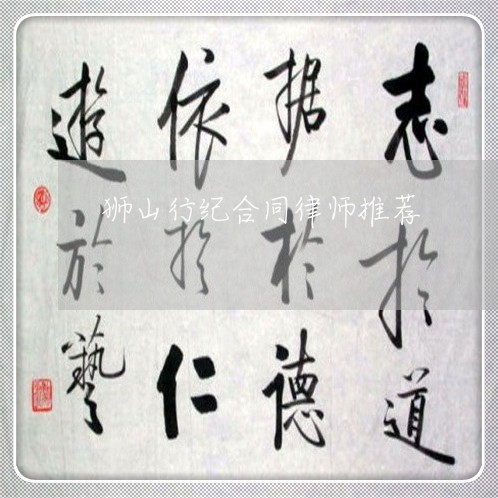 志於道
据於德
依於仁
遊於藝
狮山行纪合同律师推荐